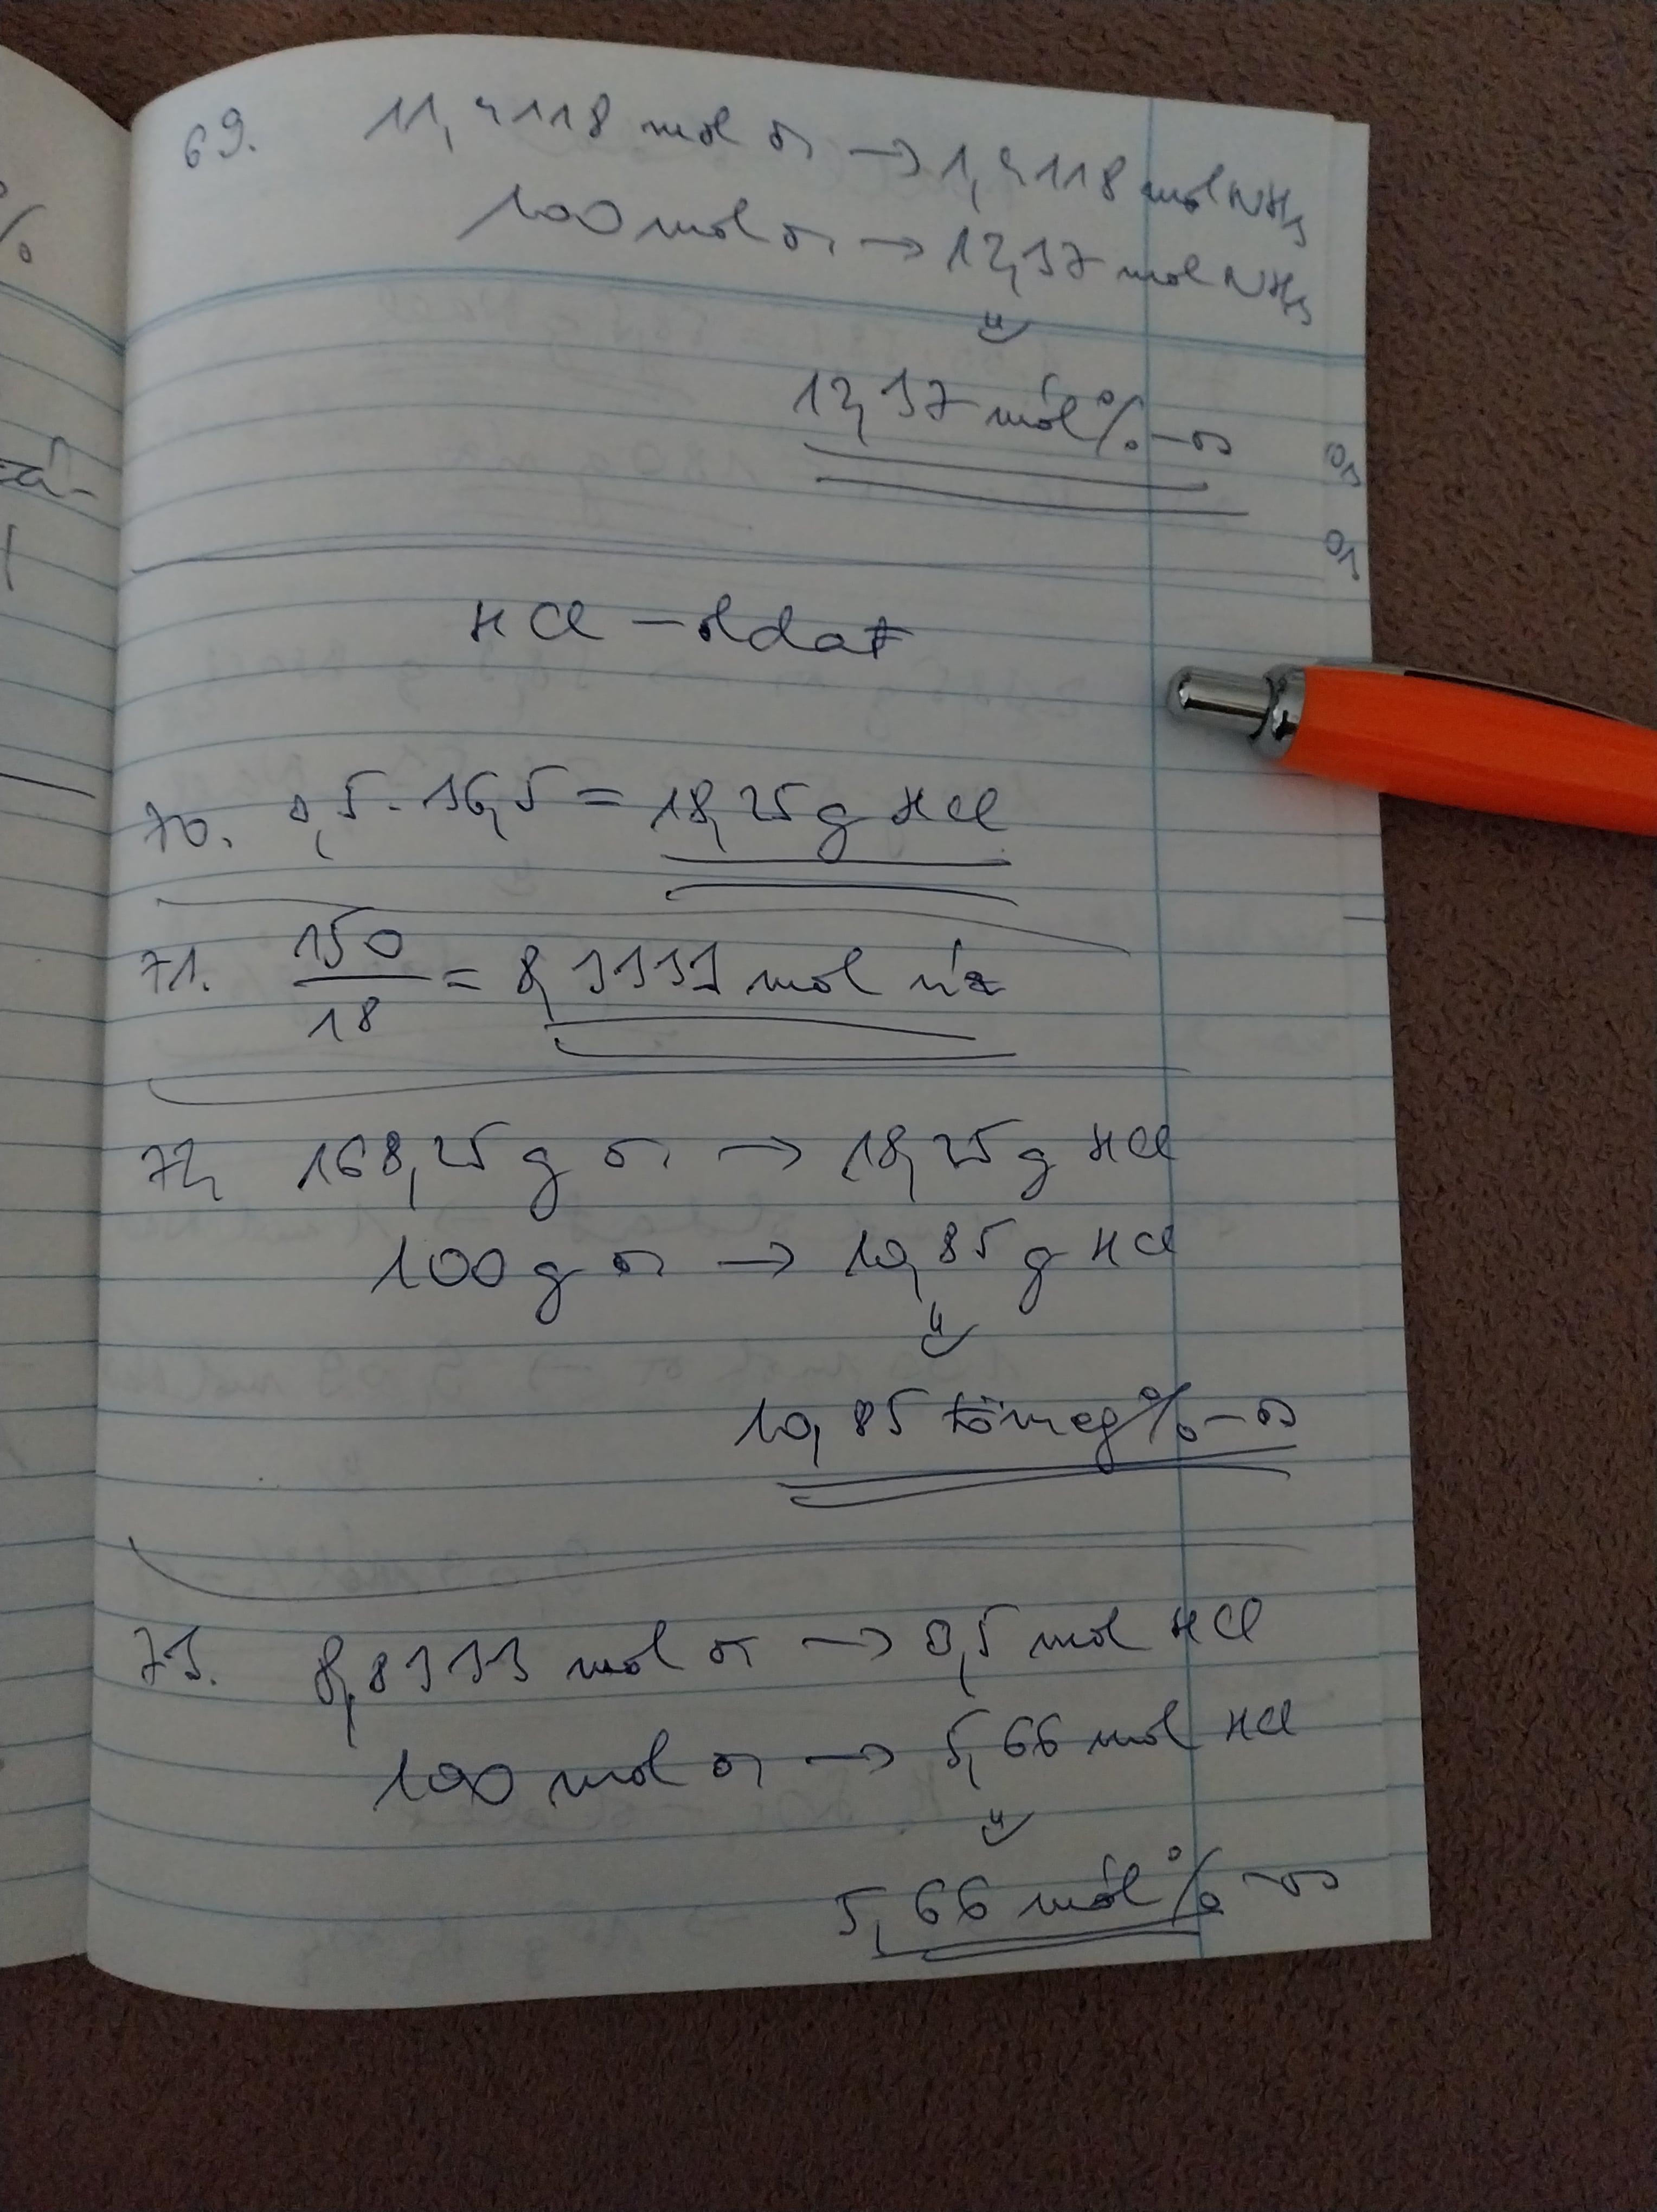 69. 11,4118 mol o. → 1,4118 mol NH3
100 mol o. → 12,37 mol NH3
⇓
12,37 mól%-os
HCl-oldat
70. 0,5 · 36,5 = 18,25 g HCl
71. 150/18 = 8,3333 mol víz
72. 168,25 g o. → 18,25 g HCl
100 g o. → 10,85 g HCl
⇓
10,85 tömeg%-os
73. 8,8333 mol o. → 0,5 mol HCl
100 mol o. → 5,66 mol HCl
⇓
5,66 mól%-os